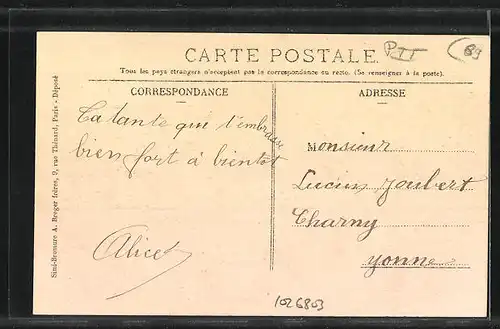 PTT
89
CARTE POSTALE.
Tous les pays étrangers n'acceptent pas la correspondance au recto. (Se renseigner à la poste).
CORRESPONDANCE
Ta tante qui t'embrasse
bien fort à bientot
Alice
ADRESSE
Monsieur
Lucien Joubert
Charny
Yonne
Simi-Bromure A. Breger frères, 9, rue Thénard, Paris - Déposé
1026803